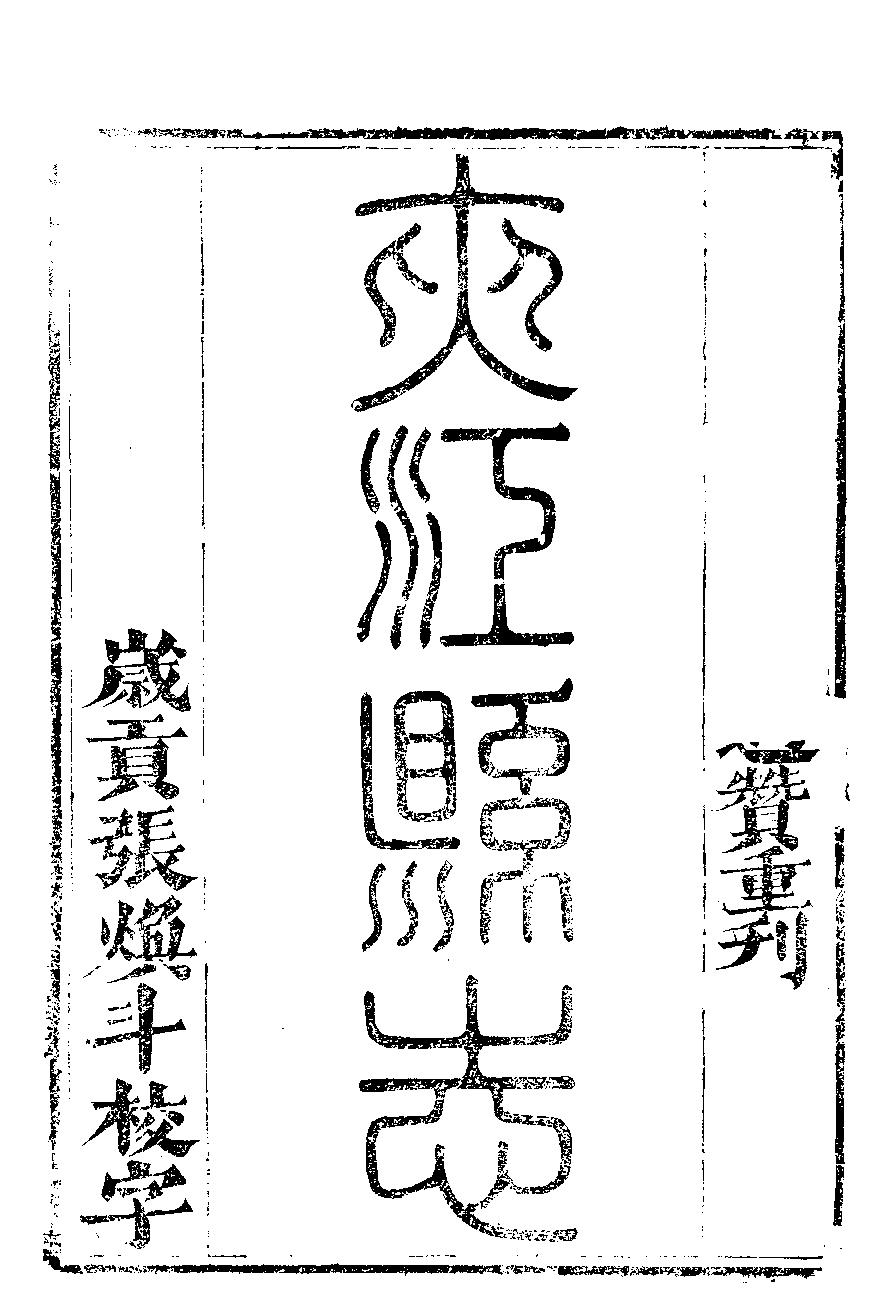 重刊
夾江縣志
歲貢張煥斗校字